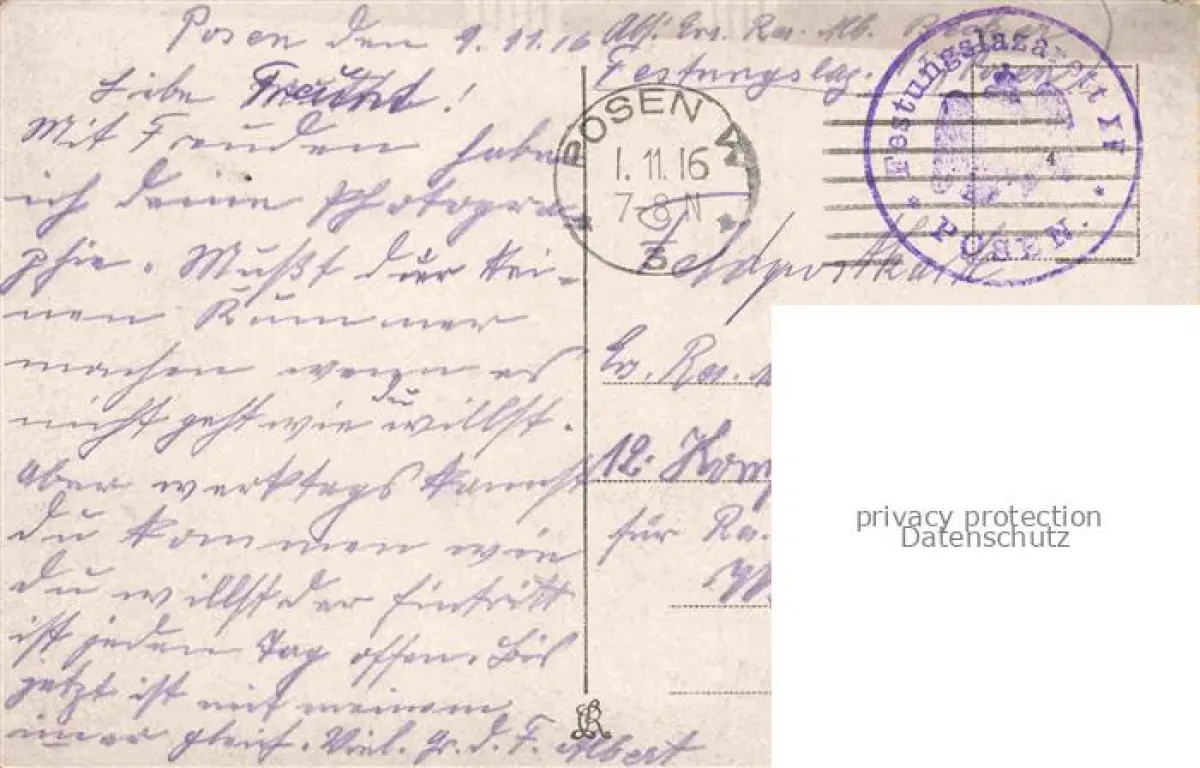 Posen den 1.11.16
Liebe Freund!
Mit Freuden habe
ich deine Photogra-
phie. Mußt dir kei-
nen Kummer
machen wenn es
nicht geht wie du willst.
Aber werktags kannst
du kommen wie
du willst der Eintritt
ist jeden Tag offen. Bis
jetzt ist mit meinem
immer gleich. Viel. Gr. d. F. Albert
Abs: Ers. Res.
Festungslaz. Posen
POSEN W
1.11.16
7-8 N
Festungslazarett IV
* POSEN. *
Feldpostkarte
12. Komp
für
privacy protection
Datenschutz